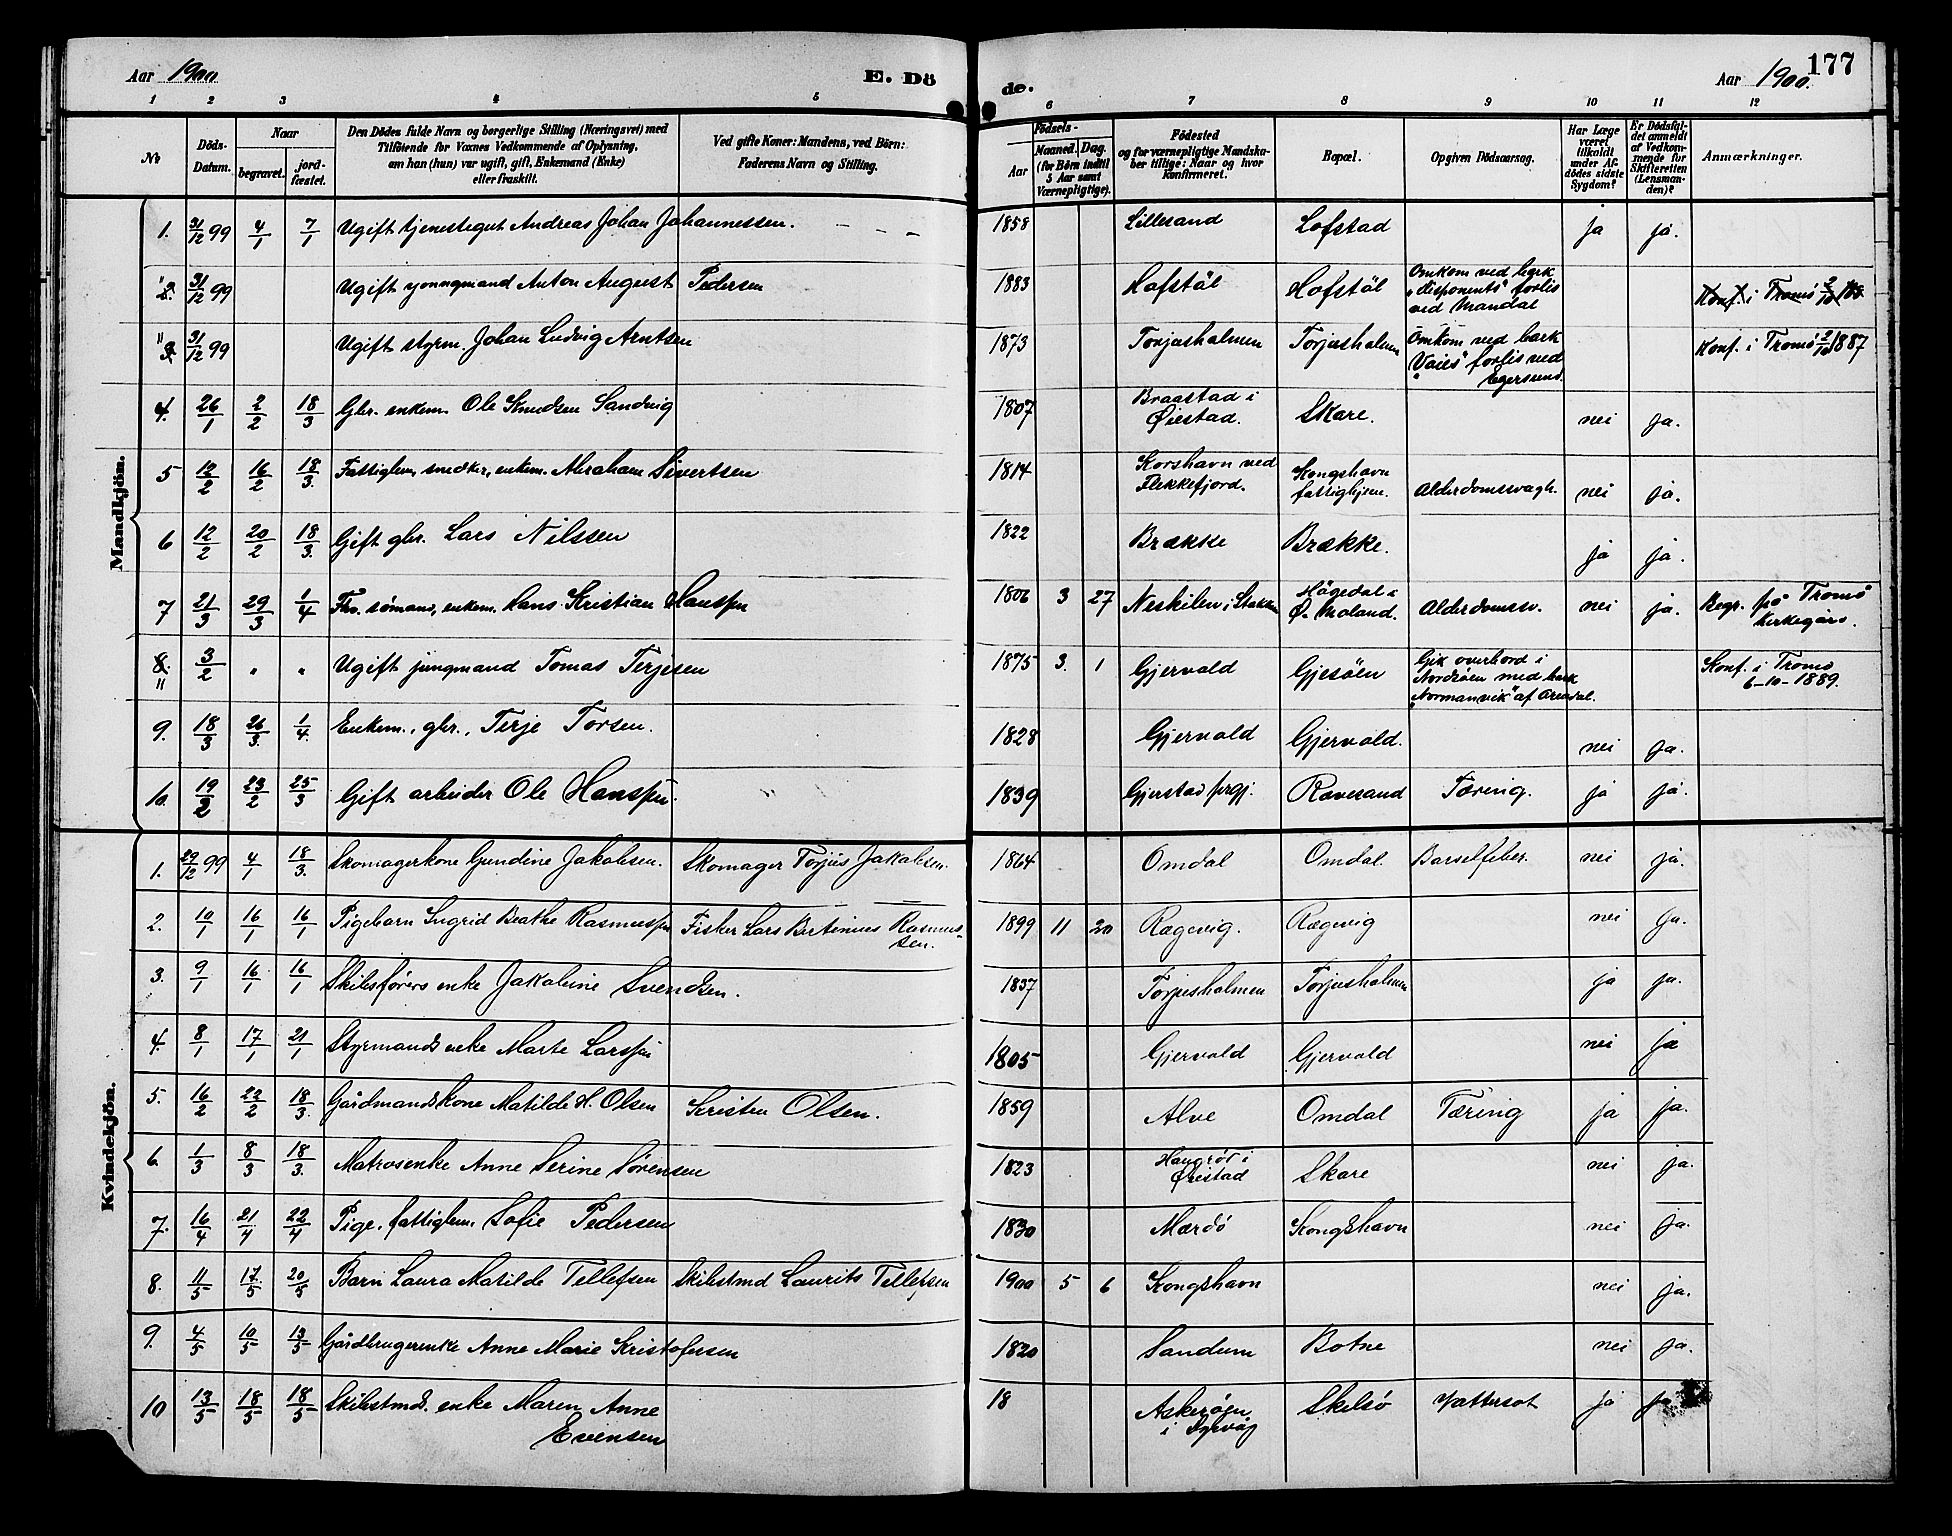 Aar 1900. E. Dö
de. Aar 1900. 177
1 2 3 4 5 6 7 8 9 10 11 12
No Döds-Datum. Naar begravet. jordfæstet. Den Dödes fulde Navn og borgerlige Stilling (Næringsvei) med Tilföiende for Voxnes Vedkommende af Oplysning, om han (hun) var ugift, gift, Enkemand (Enke) eller fraskilt. Ved gifte Koner: Mandens, ved Börn: Faderens Navn og Stilling.
Födsels- Aar Maaned. Dag. (for Börn indtil 5 Aar samt Værnepligtige). Födested og for værnepligtige Mandskaber tillige: Naar og hvor konfirmeret. Bopæl. Opgiven Dödsaarsag. Har Læge været tilkaldt under Afdödes sidste Sygdom? Er Dödsfaldet anmeldt af Vedkommende for Skifteretten (Lensmanden)? Anmærkninger.
Mandkjön.
1. 31/12 99 4/1 7/1 Ugift tjenestegut Andreas Johan Johannessen. 1858 Lillesand Lofstad ja ja.
2. 31/12 99 Ugift yonngmand Anton August Pedersen 1883 Hofstöl Hofstöl Omkom ved bark "Disponents" forlis ved Mandal Konf. i Tromö
3. 31/12 99 Ugift styrm. Johan Ludvig Arntsen 1873 Torjusholmen Torjusholmen Omkom ved bark "Vaies" forlis ved Egersund. Konf. i Tromö 2/10 1887
4. 26/1 2/2 18/3 Gbr. enkem. Ole Knudsen Sandvig 1807 Braastad i Øiestad. Skare. nei ja.
5 12/2 16/2 18/3. Fattiglem, snedker, enkem. Abraham Sivertsen 1814 Korshavn ved Flekkefjord. Kongshavn fattighjem. Alderdomssvagh. nei ja.
6 12/2 20/2 18/3. Gift gbr. Lars Nilssen 1822 Brække Brække. ja ja.
7 21/3 29/3 1/4 Fhv. sømand, enkem. Hans Kristian Hanssen 1806 3 27 Neskilen i Stokken Högedal i Ø. Moland. Alderdomssv. nei ja. Begr. på Tromö kirkegård.
8. 3/2 " " Ugift jungmand Tomas Terjesen 1875 3. 1 Gjervold Gjesöen Gik overbord i Nordsöen med bark "Normanvik" af Arendal. Konf. i Tromö 6-10-1889.
9. 18/3 26/3. 1/4. Enkem., gbr., Terje Torsen. 1828 Gjervold Gjervold. nei ja.
10. 19/2 23/2 25/3 Gift arbeider Ole Hanssen. 1839 Gjerstad prgj. Ravesand Tæring. ja ja.
Kvindekjön.
1. 29/12 99 4/1 18/3. Skomagerkone Gundine Jakobsen. Skomager Torjus Jakobsen. 1864 Omdal Omdal. Barselfeber. nei ja.
2. 10/1 16/1 16/1 Pigebarn Ingrid Beathe Rasmussen Fisker Lars Bertinius Rasmus-
sen. 1899 11 20 Rægevig. Rægevig nei ja.
3. 9/1 16/1 16/1 Skibsførers enke Jakobine Svendsen. 1837 Torjusholmen Torjusholmen ja ja.
4. 8/1 17/1 21/1 Styrmands enke Marte Larssen 1805 Gjervold Gjervold nei ja
5. 16/2 22/2 18/3. Gårdmandskone Matilde H. Olsen Kristen Olsen. 1859 Alve Omdal Tæring ja ja.
6. 1/3 8/3 18/3. Matrosenke Anne Serine Sørensen 1823 Øiestad Skare nei ja.
7. 16/4 21/4 22/4 Pige. fattiglem. Sofie Pedersen 1830 Mærdö Kongshavn nei ja.
8. 11/5 17/5 20/5 Barn Laura Matilde Tellefsen Skibstmd Laurits Tellefsen 1900 5 6 Kongshavn nei ja.
9. 4/5 10/5 13/5 Gårdbrugerenke Anne Marie Kristofersen 1820 Sandum Botne nei ja.
10 13/5 18/5 18/5 Skibstmds. enke Maren Anne
Evensen 18 Askerøen i Dypvåg Skilsö Vattersot ja ja